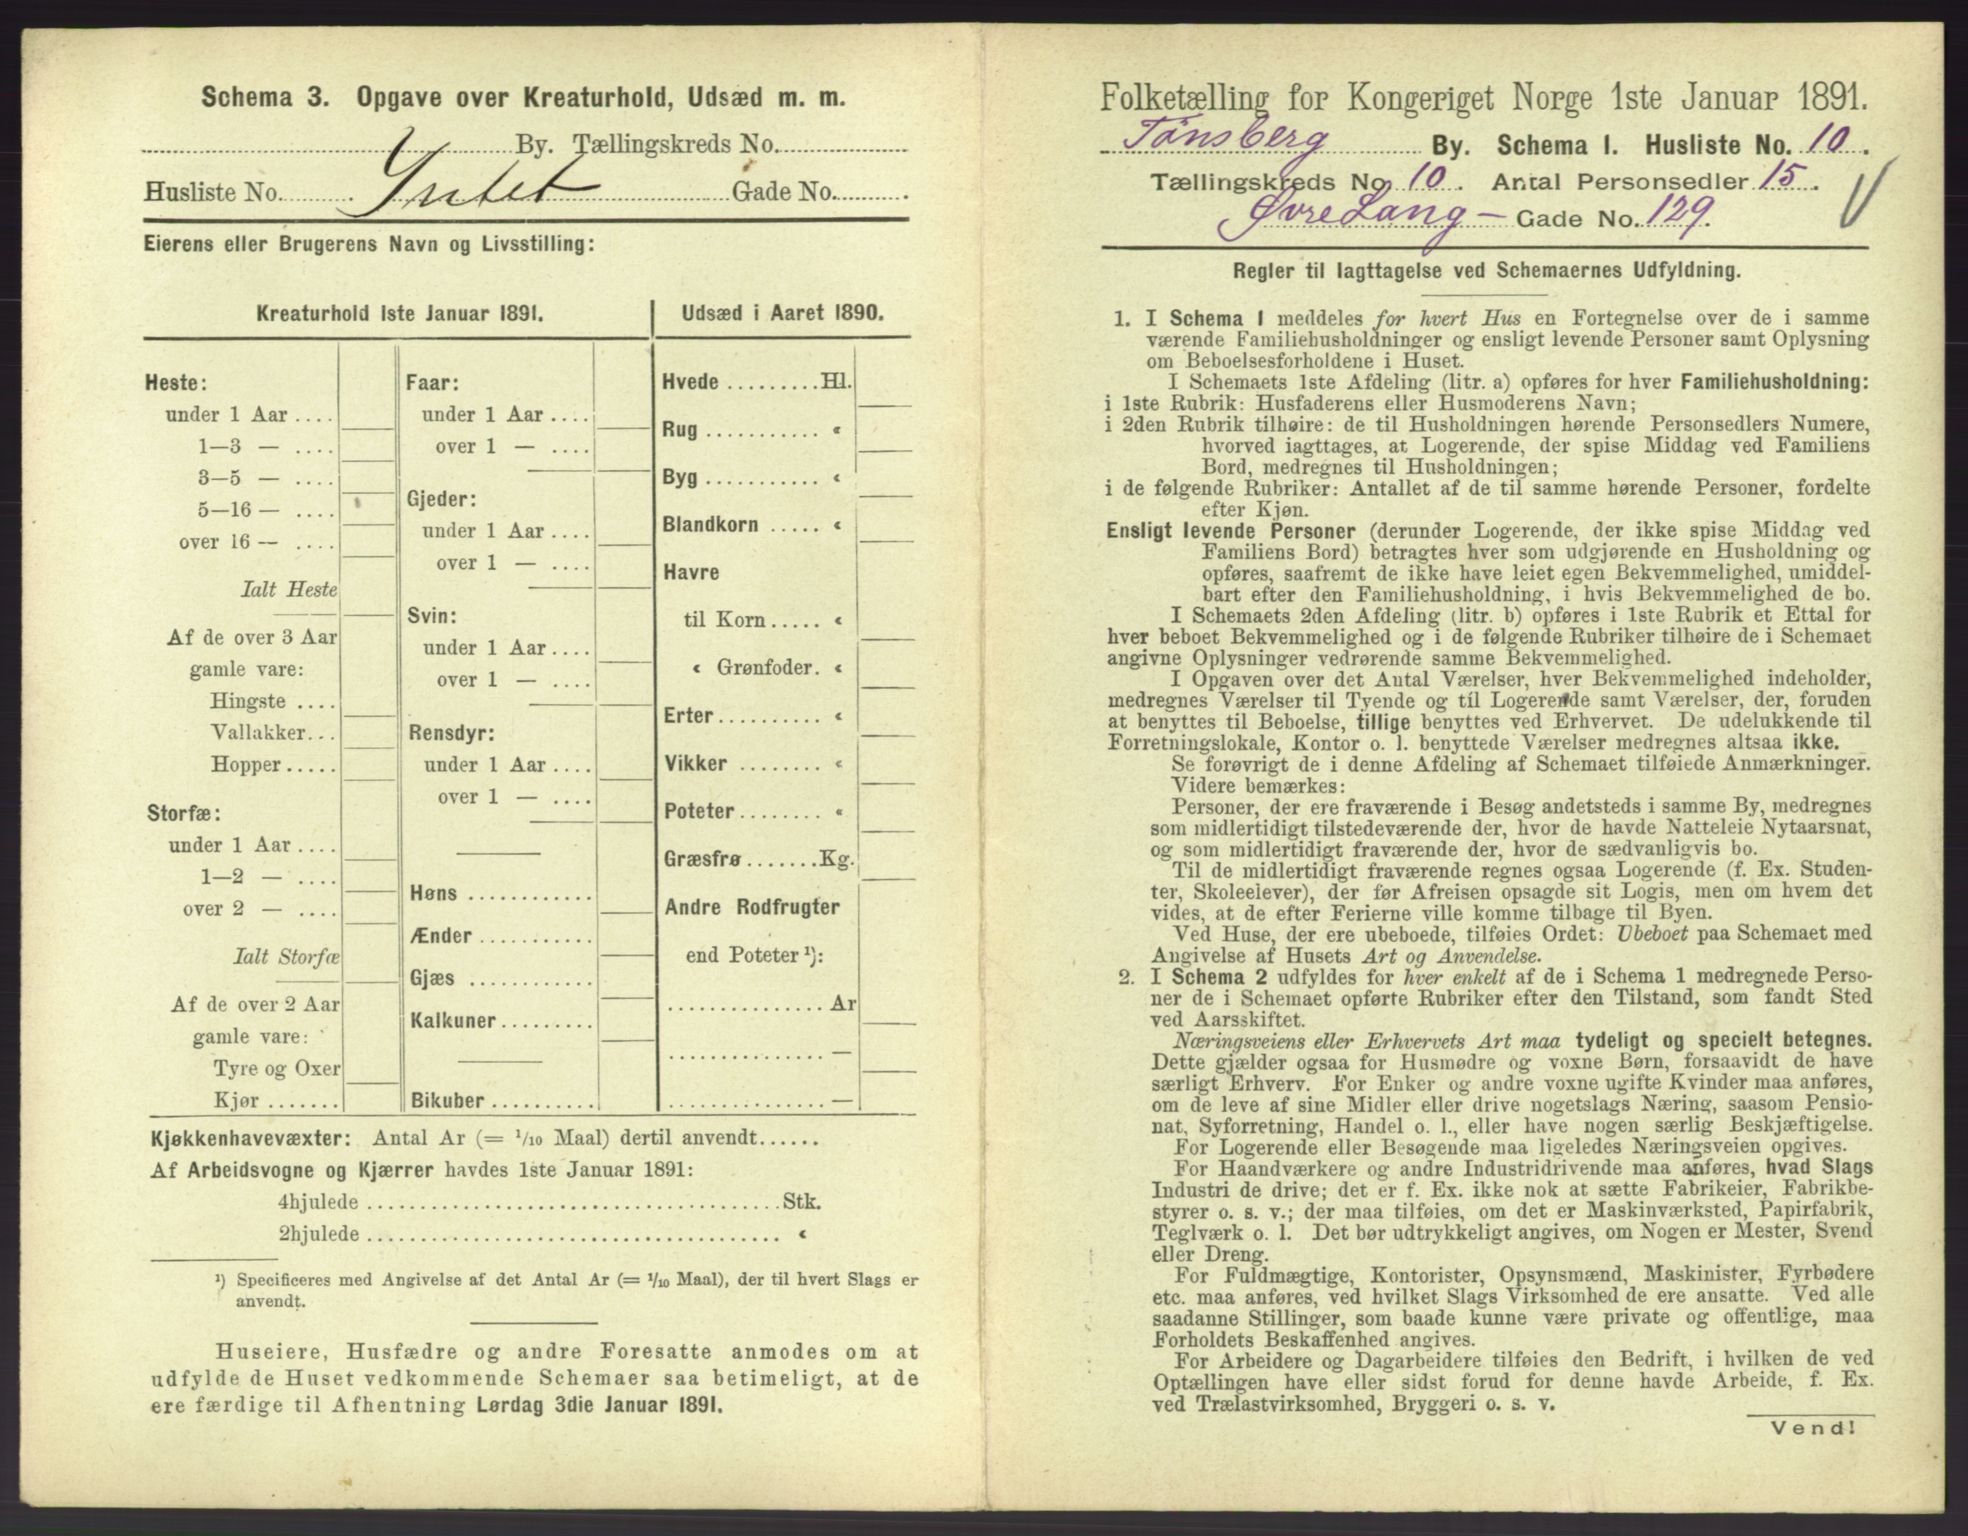 Schema 3. Opgave over Kreaturhold, Udsæd m. m.
By. Tællingskreds No.
Husliste No. Intet Gade No.
Eierens eller Brugerens Navn og Livsstilling:
Kreaturhold 1ste Januar 1891.
Heste:
under 1 Aar ....
1—3 — ....
3—5 — ....
5—16 — ....
over 16 — ....
Ialt Heste
Af de over 3 Aar
gamle vare:
Hingste ....
Vallakker...
Hopper.....
Storfæ:
under 1 Aar ....
1—2 — ....
over 2 — ....
Ialt Storfæ
Af de over 2 Aar
gamle vare:
Tyre og Oxer
Kjør .......
Faar:
under 1 Aar ....
over 1 — ....
Gjeder:
under 1 Aar ....
over 1 — ....
Svin:
under 1 Aar ....
over 1 — ....
Rensdyr:
under 1 Aar ....
over 1 — ....
Høns ............
Ænder ...........
Gjæs ............
Kalkuner.........
Bikuber ..........
Udsæd i Aaret 1890.
Hvede .........Hl.
Rug ........... «
Byg ........... «
Blandkorn ..... «
Havre
til Korn..... «
« Grønfoder. «
Erter.......... «
Vikker ........ «
Poteter........ «
Græsfrø .......Kg.
Andre Rodfrugter
end Poteter ¹):
............... Ar
............... —
............... —
Kjøkkenhavevæxter: Antal Ar (= 1/10 Maal) dertil anvendt......
Af Arbeidsvogne og Kjærrer havdes 1ste Januar 1891:
4hjulede ........................................Stk.
2hjulede ........................................ «
¹) Specificeres med Angivelse af det Antal Ar (= 1/10 Maal), der til hvert Slags er
anvendt.
Huseiere, Husfædre og andre Foresatte anmodes om at
udfylde de Huset vedkommende Schemaer saa betimeligt, at de
ere færdige til Afhentning Lørdag 3die Januar 1891.
Folketælling for Kongeriget Norge 1ste Januar 1891.
Tönsberg By. Schema 1. Husliste No. 10.
Tællingskreds No. 10. Antal Personsedler 15.
Øvre Lang- Gade No. 129.
Regler til Iagttagelse ved Schemaernes Udfyldning.
1. I Schema 1 meddeles for hvert Hus en Fortegnelse over de i samme
værende Familiehusholdninger og ensligt levende Personer samt Oplysning
om Beboelsesforholdene i Huset.
I Schemaets 1ste Afdeling (litr. a) opføres for hver Familiehusholdning:
i 1ste Rubrik: Husfaderens eller Husmoderens Navn;
i 2den Rubrik tilhøire: de til Husholdningen hørende Personsedlers Numere,
hvorved iagttages, at Logerende, der spise Middag ved Familiens
Bord, medregnes til Husholdningen;
i de følgende Rubriker: Antallet af de til samme hørende Personer, fordelte
efter Kjøn.
Ensligt levende Personer (derunder Logerende, der ikke spise Middag ved
Familiens Bord) betragtes hver som udgjørende en Husholdning og
opføres, saafremt de ikke have leiet egen Bekvemmelighed, umiddel-
bart efter den Familiehusholdning, i hvis Bekvemmelighed de bo.
I Schemaets 2den Afdeling (litr. b) opføres i 1ste Rubrik et Ettal for
hver beboet Bekvemmelighed og i de følgende Rubriker tilhøire de i Schemaet
angivne Oplysninger vedrørende samme Bekvemmelighed.
I Opgaven over det Antal Værelser, hver Bekvemmelighed indeholder,
medregnes Værelser til Tyende og til Logerende samt Værelser, der, foruden
at benyttes til Beboelse, tillige benyttes ved Erhvervet. De udelukkende til
Forretningslokale, Kontor o. l. benyttede Værelser medregnes altsaa ikke.
Se forøvrigt de i denne Afdeling af Schemaet tilføiede Anmærkninger.
Videre bemærkes:
Personer, der ere fraværende i Besøg andetsteds i samme By, medregnes
som midlertidigt tilstedeværende der, hvor de havde Natteleie Nytaarsnat,
og som midlertidigt fraværende der, hvor de sædvanligvis bo.
Til de midlertidigt fraværende regnes ogsaa Logerende (f. Ex. Studen-
ter, Skoleelever), der før Afreisen opsagde sit Logis, men om hvem det
vides, at de efter Ferierne ville komme tilbage til Byen.
Ved Huse, der ere ubeboede, tilføies Ordet: Ubeboet paa Schemaet med
Angivelse af Husets Art og Anvendelse.
2. I Schema 2 udfyldes for hver enkelt af de i Schema 1 medregnede Perso-
ner de i Schemaet opførte Rubriker efter den Tilstand, som fandt Sted
ved Aarsskiftet.
Næringsveiens eller Erhvervets Art maa tydeligt og specielt betegnes.
Dette gjælder ogsaa for Husmødre og voxne Børn, forsaavidt de have
særligt Erhverv. For Enker og andre voxne ugifte Kvinder maa anføres,
om de leve af sine Midler eller drive nogetslags Næring, saasom Pensio-
nat, Syforretning, Handel o. l., eller have nogen særlig Beskjæftigelse.
For Logerende eller Besøgende maa ligeledes Næringsveien opgives.
For Haandværkere og andre Industridrivende maa anføres, hvad Slags
Industri de drive; det er f. Ex. ikke nok at sætte Fabrikeier, Fabrikbe-
styrer o. s. v.; der maa tilføies, om det er Maskinværksted, Papirfabrik,
Teglværk o. l. Det bør udtrykkeligt angives, om Nogen er Mester, Svend
eller Dreng.
For Fuldmægtige, Kontorister, Opsynsmænd, Maskinister, Fyrbødere
etc. maa anføres, ved hvilket Slags Virksomhed de ere ansatte. Ved alle
saadanne Stillinger, som baade kunne være private og offentlige, maa
Forholdets Beskaffenhed angives.
For Arbeidere og Dagarbeidere tilføies den Bedrift, i hvilken de ved
Optællingen have eller sidst forud for denne havde Arbeide, f. Ex.
ved Trælastvirksomhed, Bryggeri o. s. v.
Vend!